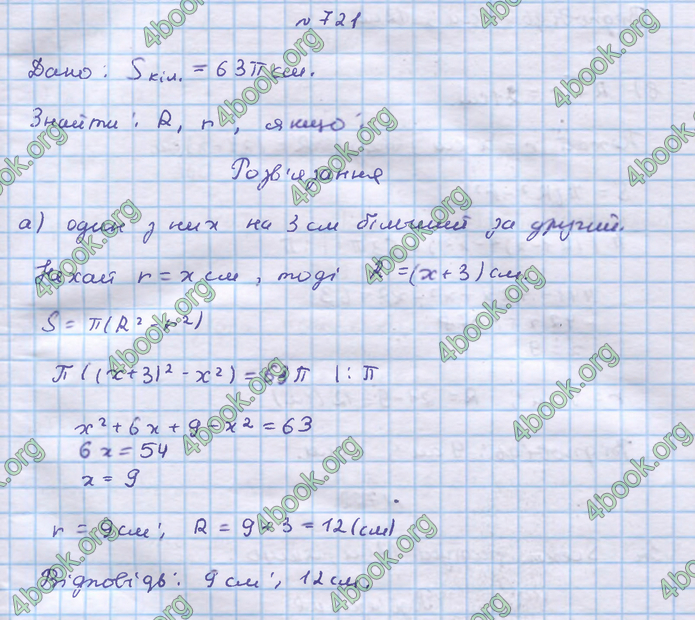 № 721
Дано: Sкіл. = 63π см.
Знайти: R, r, якщо:
Розв'язання
а) один з них на 3 см більший за другий.
Нехай r = x см, тоді R = (x + 3) см.
S = π(R² - r²)
π((x+3)² - x²) = 63π |: π
x² + 6x + 9 - x² = 63
6x = 54
x = 9
r = 9 см; R = 9 + 3 = 12 (см)
Відповідь: 9 см; 12 см
4book.org